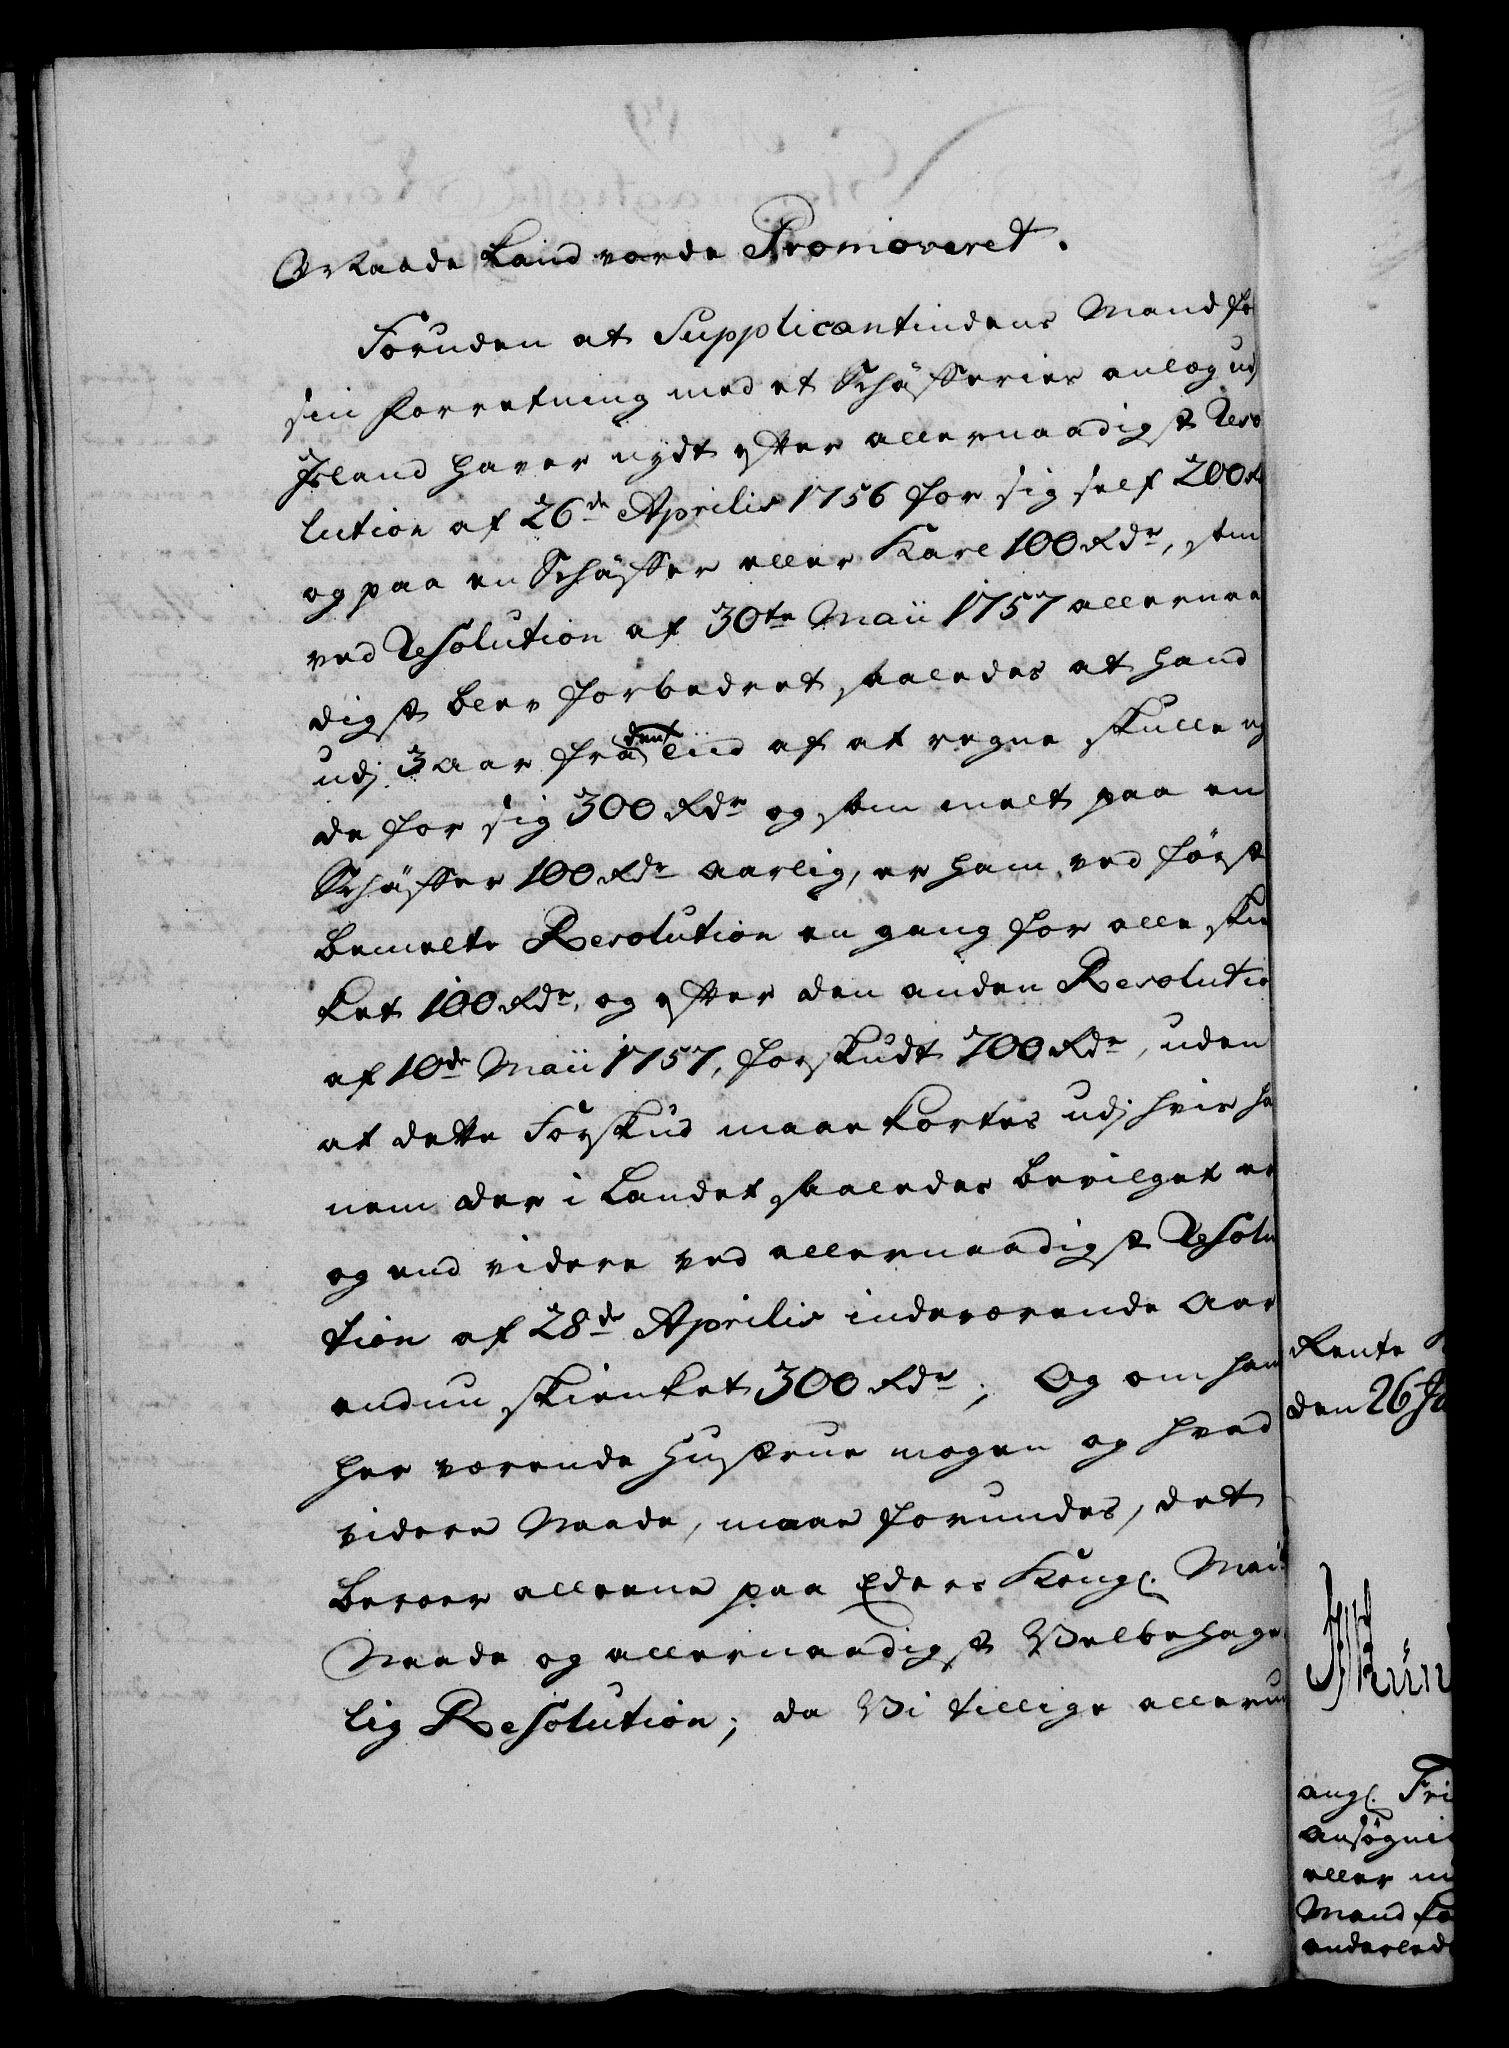 Ørkaade Land vorde Promoveret.
Foruden at Supplicantindens Mand for
sin Forretning med et Schäfferies anlæg udj
Jsland haver nydt efter allernaadigst Reso
lution af 26de Aprilis 1756 for sig self 200 R
og paa en Schäffer eller Karl 100 Rdr, som
ved Resolution af 30te Maii 1757 allernaa
digst blev forbedret saaledes at hand
udj 3 aar fra den tiid af at regne skulle ny
de for sig 300 Rdr og som melt paa en
Schäffer 100 Rdr aarlig, er ham ved først
bemelte Resolution en gang for alle skien
ket 100 Rdr, og efter den anden Resolutio
af 10de Maii 1757, forskudt 700 Rdr, uden
at dette Forskud maae kortes udj hvis ha
nem der i Landet saaledes bevilget er
og end videre ved allernaadigst Resolu
tion af 28de Aprilis indeværende Aar
endnu skienket 300 Rdr; Og om hans
her værende Hustrue nogen og hvad
videre Naade, maae forundes, det
beroer alleene paa Eders Kongl. Mai
Naade og allernaadigst Velbehage
lig Resolution; da Vi tillige allerun
Rente K
den 26 Ja
angl. Fri
ansøgni
eller
Mand
anderled